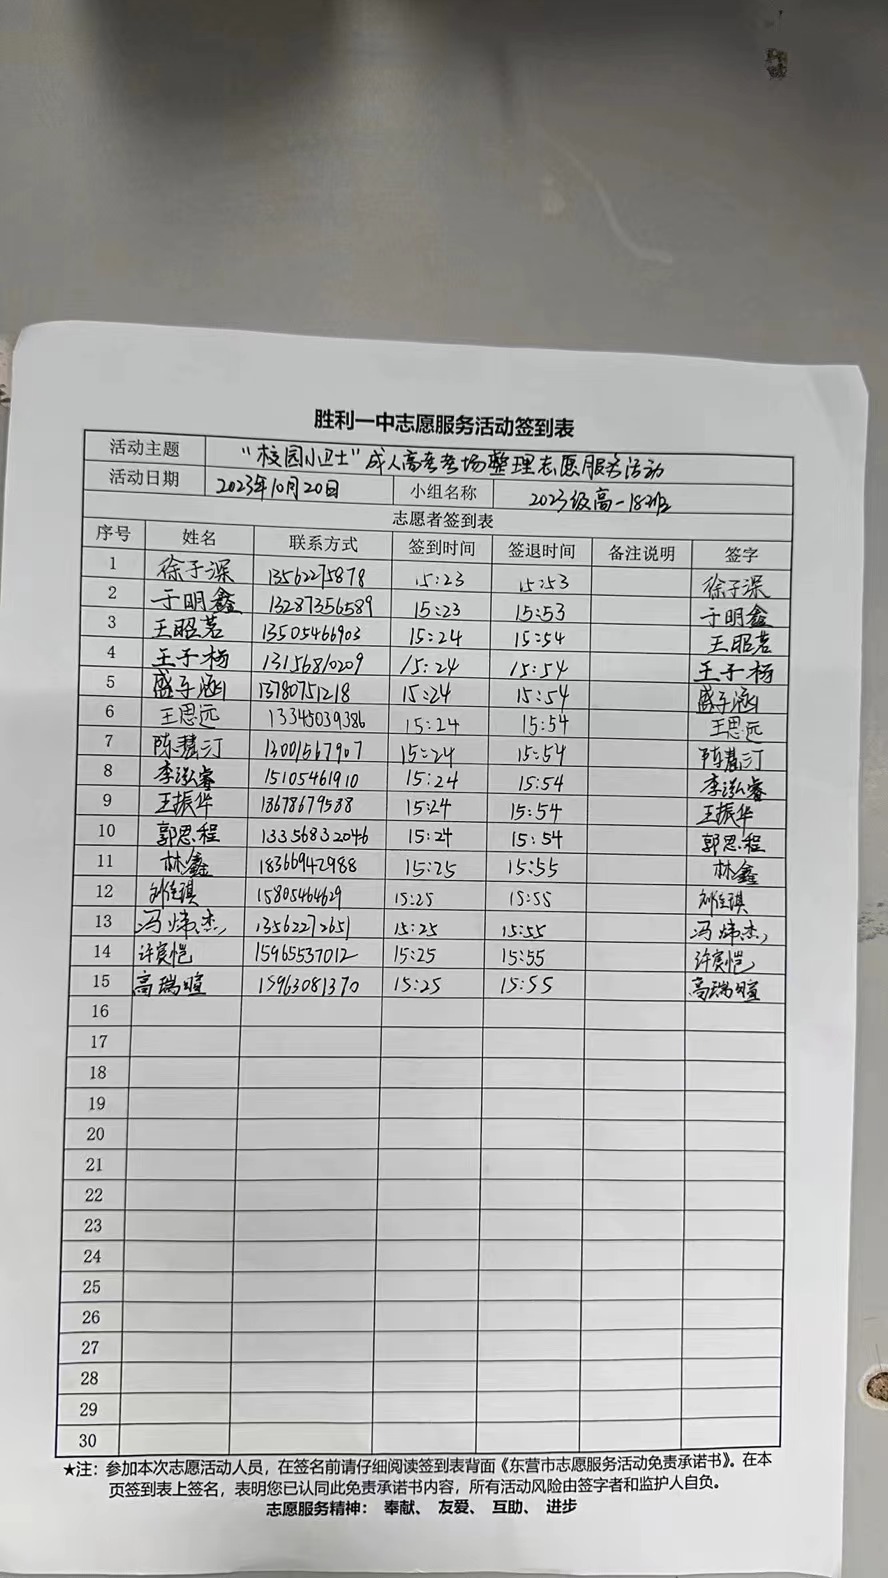 胜利一中志愿服务活动签到表
活动主题 “校园小卫士”成人高考考场整理志愿服务活动
活动日期 2023年10月20日 小组名称 2023级高一18班
志愿者签到表
序号 姓名 联系方式 签到时间 签退时间 备注说明 签字
1 徐子深 13562275878 15:23 15:53 徐子深
2 于明鑫 13287356589 15:23 15:53 于明鑫
3 王昭茗 13505466903 15:24 15:54 王昭茗
4 王子杨 13156810209 15:24 15:54 王子杨
5 盛子涵 13780751218 15:24 15:54 盛子涵
6 王思远 13345039386 15:24 15:54 王思远
7 陈慧汀 13001567907 15:24 15:54 陈慧汀
8 李泓睿 15105461910 15:24 15:54 李泓睿
9 王振华 18678679588 15:24 15:54 王振华
10 郭思程 13356832046 15:24 15:54 郭思程
11 林鑫 18366942988 15:25 15:55 林鑫
12 刘佳琪 15805464629 15:25 15:55 刘佳琪
13 冯炜杰 13562272651 15:25 15:55 冯炜杰
14 许宾恺 15965537012 15:25 15:55 许宾恺
15 高瑞暄 15963081370 15:25 15:55 高瑞暄
16
17
18
19
20
21
22
23
24
25
26
27
28
29
30
★注：参加本次志愿活动人员，在签名前请仔细阅读签到表背面《东营市志愿服务活动免责承诺书》。在本
页签到表上签名，表明您已认同此免责承诺书内容，所有活动风险由签字者和监护人自负。
志愿服务精神： 奉献、 友爱、 互助、 进步